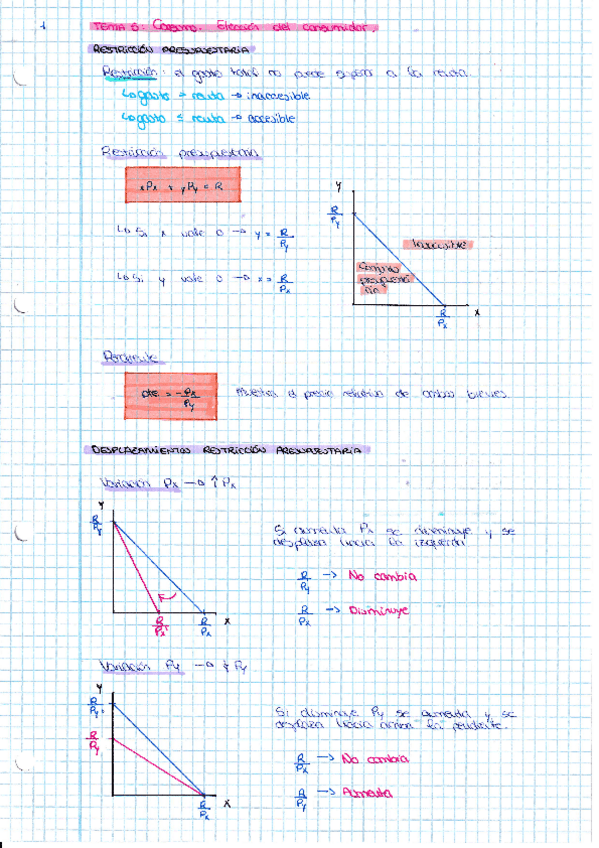 1
TEMA 5: Consumo. Elección del consumidor.
RESTRICCIÓN PRESUPUESTARIA
Restricción: el gasto total no puede superar a la renta.
↳ gasto > renta → inaccesible
↳ gasto ≤ renta → accesible
Restricción presupuestaria
xPx + yPy = R
↳ Si x vale 0 → y = R/Py
↳ Si y vale 0 → x = R/Px
Y
R/Py
Inaccesible
Conjunto
presupuesta
ria
R/Px
X
Pendiente
pte = -Px/Py
Muestra el precio relativo de ambos bienes
DESPLAZAMIENTOS RESTRICCIÓN PRESUPUESTARIA
Variación Px → ↑Px
Y
R/Py
R/Px'
R/Px
X
Si aumenta Px se disminuye y se
desplaza hacia la izquierda
R/Py → No cambia
R/Px → Disminuye
Variación Py → ↓Py
Y
R/Py'
R/Py
R/Px
X
Si disminuye Py se aumenta y se
desplaza hacia arriba la pendiente.
R/Px → No cambia
R/Py → Aumenta